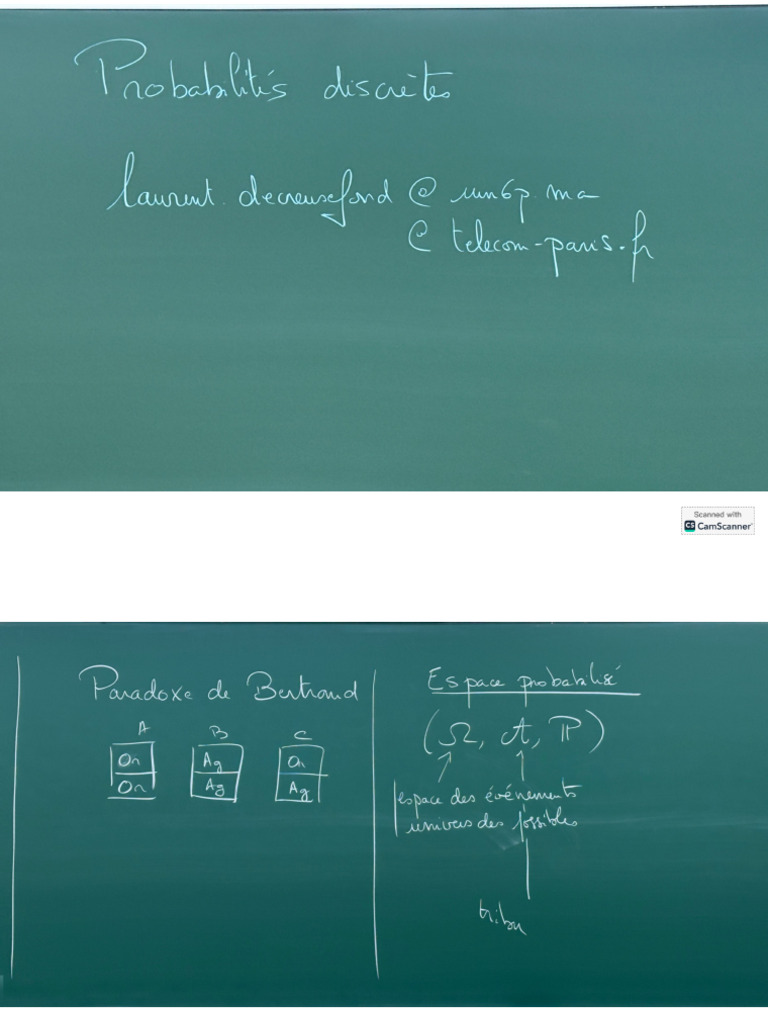 Probabilités discrètes
laurent.decreusefond @ um6p.ma
@ telecom-paris.fr
Scanned with
CS CamScanner
Paradoxe de Bertrand
A B C
Or Ag Or
Or Ag Ag
Espace probabilisé
(Ω, A, P)
espace des événements
univers des possibles
tribu